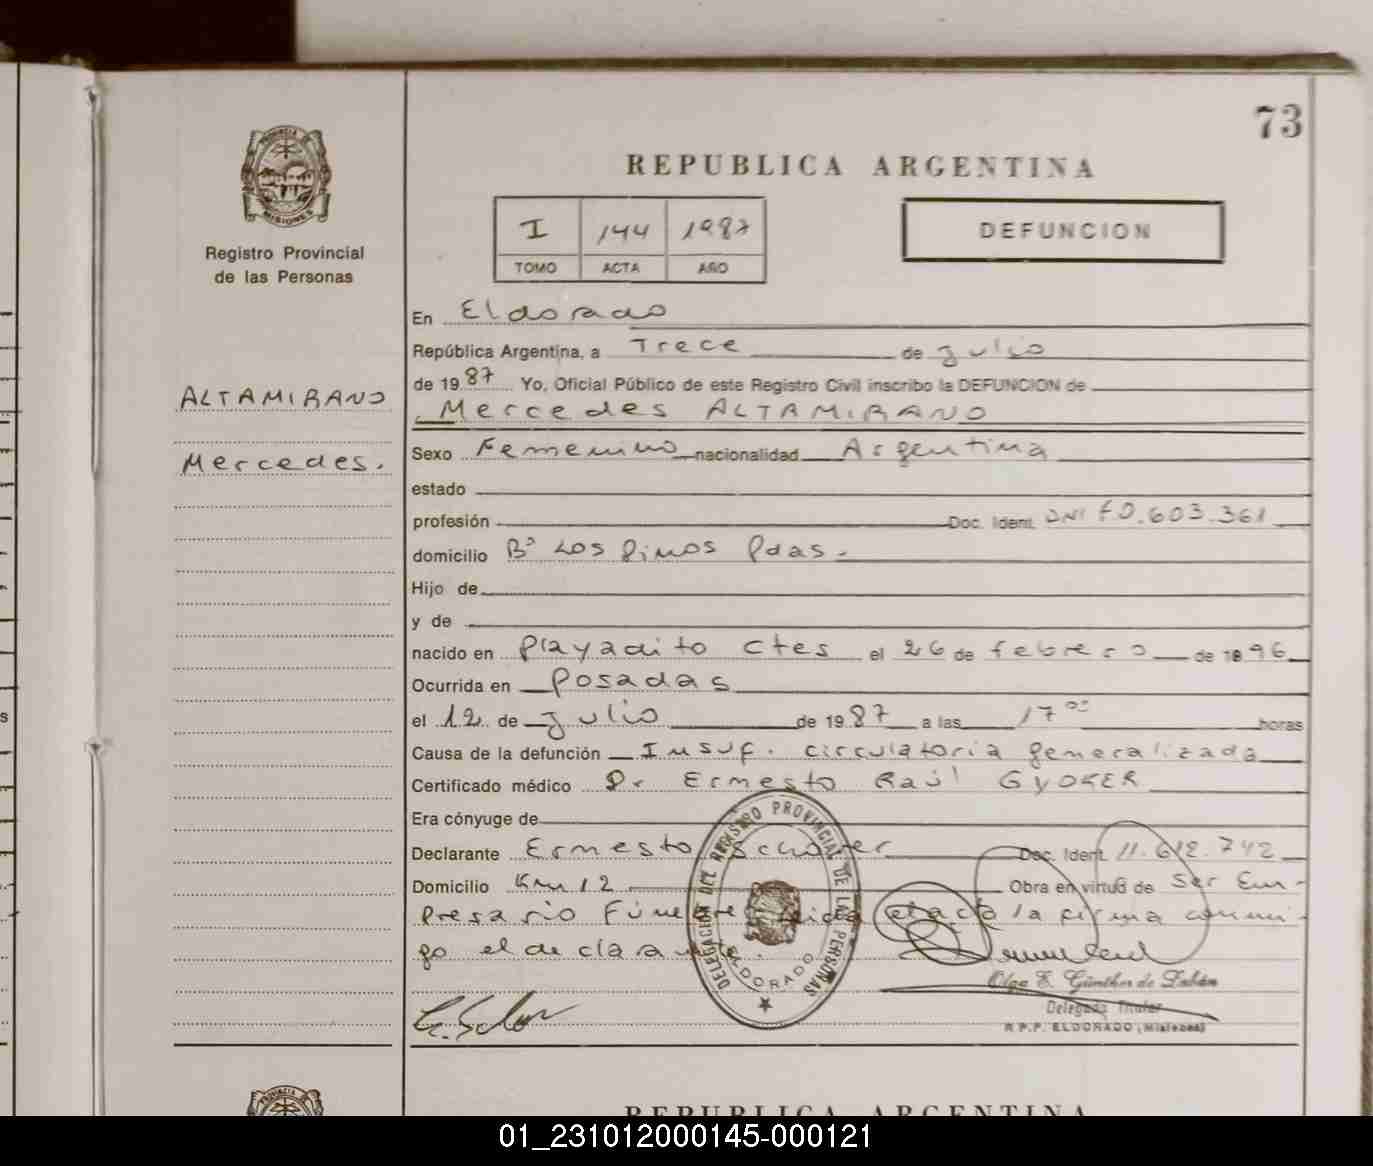 73
PROVINCIA DE
MISIONES
Registro Provincial
de las Personas
REPUBLICA ARGENTINA
I 144 1987
TOMO ACTA AÑO
DEFUNCION
ALTAMIRANO
Mercedes.
En Eldorado
República Argentina, a Trece de Julio
de 1987 Yo, Oficial Público de este Registro Civil inscribo la DEFUNCION de
Mercedes ALTAMIRANO
Sexo Femenino nacionalidad Argentina
estado
profesión Doc. Ident. DNI F0.603.361
domicilio Bº Los Pinos Pdas.
Hijo de
y de
nacido en Playadito Ctes el 26 de febrero de 1896
Ocurrida en Posadas
el 12 de Julio de 1987 a las 17ºº horas
Causa de la defunción Insuf. circulatoria generalizada
Certificado médico Dr Ernesto Raúl GYOKER
Era cónyuge de
Declarante Ernesto Doc. Ident. 11.612.742
Domicilio Km 12 Obra en virtud de Ser Em-
presario Fúnebre la firma conmi-
go el declarante.
DELEGACION DEL REGISTRO PROVINCIAL DE LAS PERSONAS
ELDORADO
Olga E. Günther de Zabán
Delegada Titular
R.P.P. ELDORADO (Misiones)
REPUBLICA ARGENTINA
01_231012000145-000121